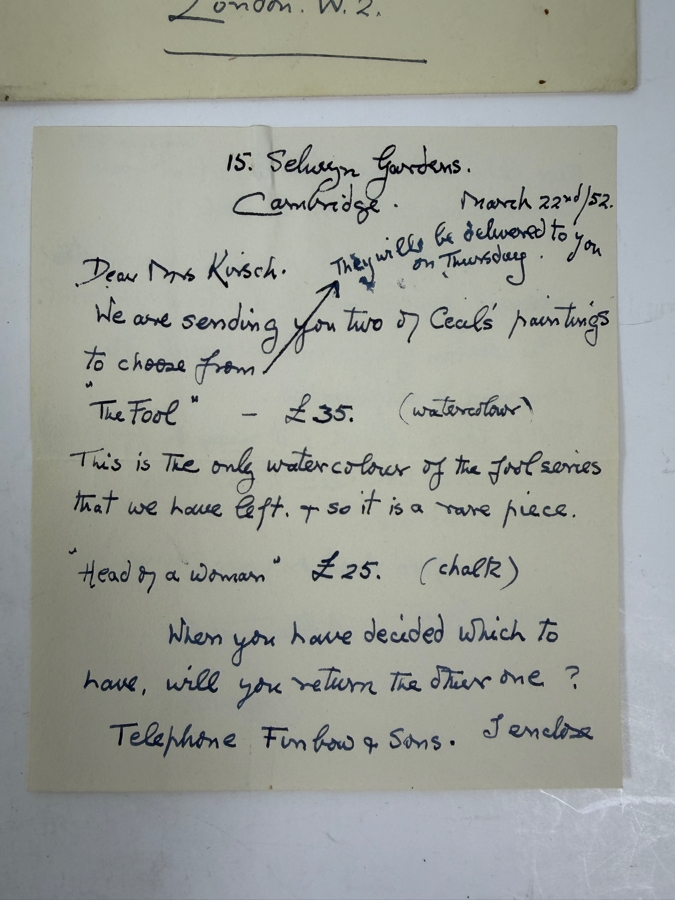 London. W.2.
15. Selwyn Gardens.
Cambridge.
March 22nd/52.
They will be delivered to you
on Thursday.
Dear Mrs Kirsch.
We are sending you two of Cecil's paintings
to choose from
"The Fool" - £35. (watercolour)
This is the only watercolour of the fool series
that we have left. + so it is a rare piece.
"Head of a woman" £25. (chalk)
When you have decided which to
have, will you return the other one ?
Telephone Finbow & Sons. I enclose